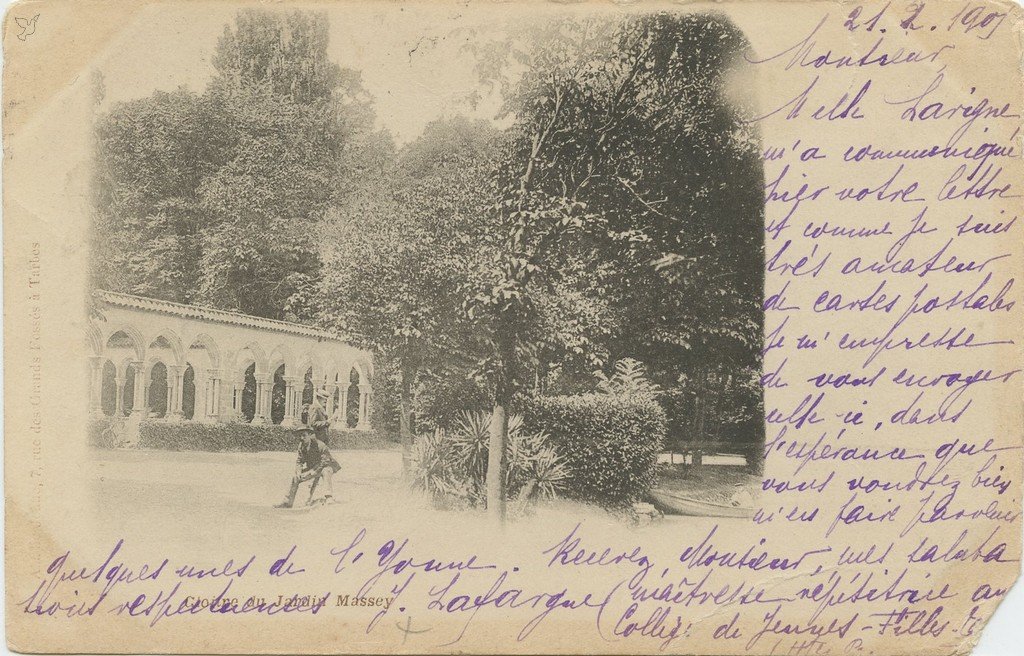 21. 2. 1901
Monsieur,
Melle Lavigne
m'a communiqué
hier votre lettre
et comme je suis
très amateur
de cartes postales
je m'empresse
de vous envoyer
celle-ci, dans
l'espérance que
vous voudrez bien
m'en faire parvenir
quelques unes de l'Yonne. Recevez Monsieur, mes saluta
tions respectueuses J. Lafargue (maîtresse répétitrice au
Collège de Jeunes-Filles.
Cloître du Jardin Massey
7, rue des Grands Fossés à Tarbes